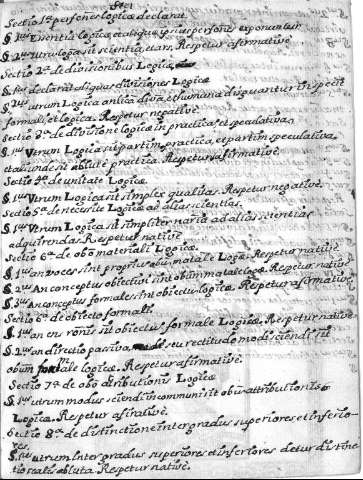 Sectio 1ª per senes logicæ declarat
§ 1us Essentia logicæ, et aliqua pus personis exponuntur
§ 2us utru loga sit scientia, et ars. Respetur afirmativè
Sectio 2ª de divisionibus Logicæ
§ 1us declarat aliquas divisiones Logicæ
§ 2us utrum Logica antica diva, et humana disquantur in specie
formali, et logica. Respetur negativè.
Sectio 3ª de divisione logicæ in practica, et speculativa,
§ 1us Utrum Logica sit partim practica, et partim speculativa,
et an unde sit absolutè practica. Respetur afirmativè.
Sectio 4ª de unitate Logicæ
§ 1us Utrum Logica sit simplex qualitas. Respetur negativè.
Sectio 5ª de necessitate Logicæ ad alias scientias.
§ 1us Utrum Logica sit simpliciter naria ad alias scientias
adquirendas. Respetur nativè
Sectio 6ª de obto materiali Logicæ.
§ 1us an voces sint proprius obum matale Logæ. Respetur nativè
§ 2us An conceptus obiectivi sint obum matale logæ. Respetur nativè
§ 3us An conceptus formales sint obiectu logicæ. Respetur afirmative
Sectio 6ª de obiecto formali.
§ 1us an ens ronis sit obiectus formale Logicæ. Respetur nativè
§ 2us an directio passiva, seu rectitudo modi sciendi sit
obum formle logicæ. Respetur afirmativè.
Sectio 7ª de obto attributionis Logicæ
§ 1us utrum modus sciendi in communi sit obus attributionis
Logicæ. Respetur afirativè.
Sectio 8ª de distinctione inter gradus superiores et inferio-
res
§ 1us utrum inter gradus superiores et inferiores detur distinc
tio realis absoluta. Respetur nativè.